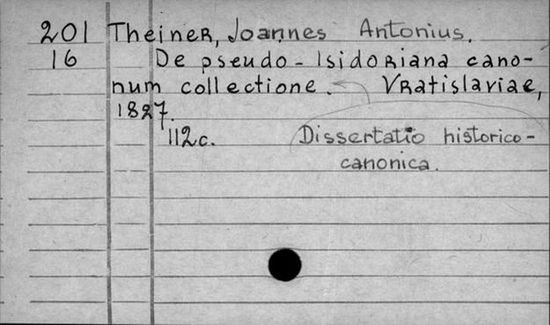 201 Theiner, Joannes Antonius.
16 De pseudo-Isidoriana cano-
num collectione. Vratislaviae,
1827.
112c. Dissertatio historico-
canonica.